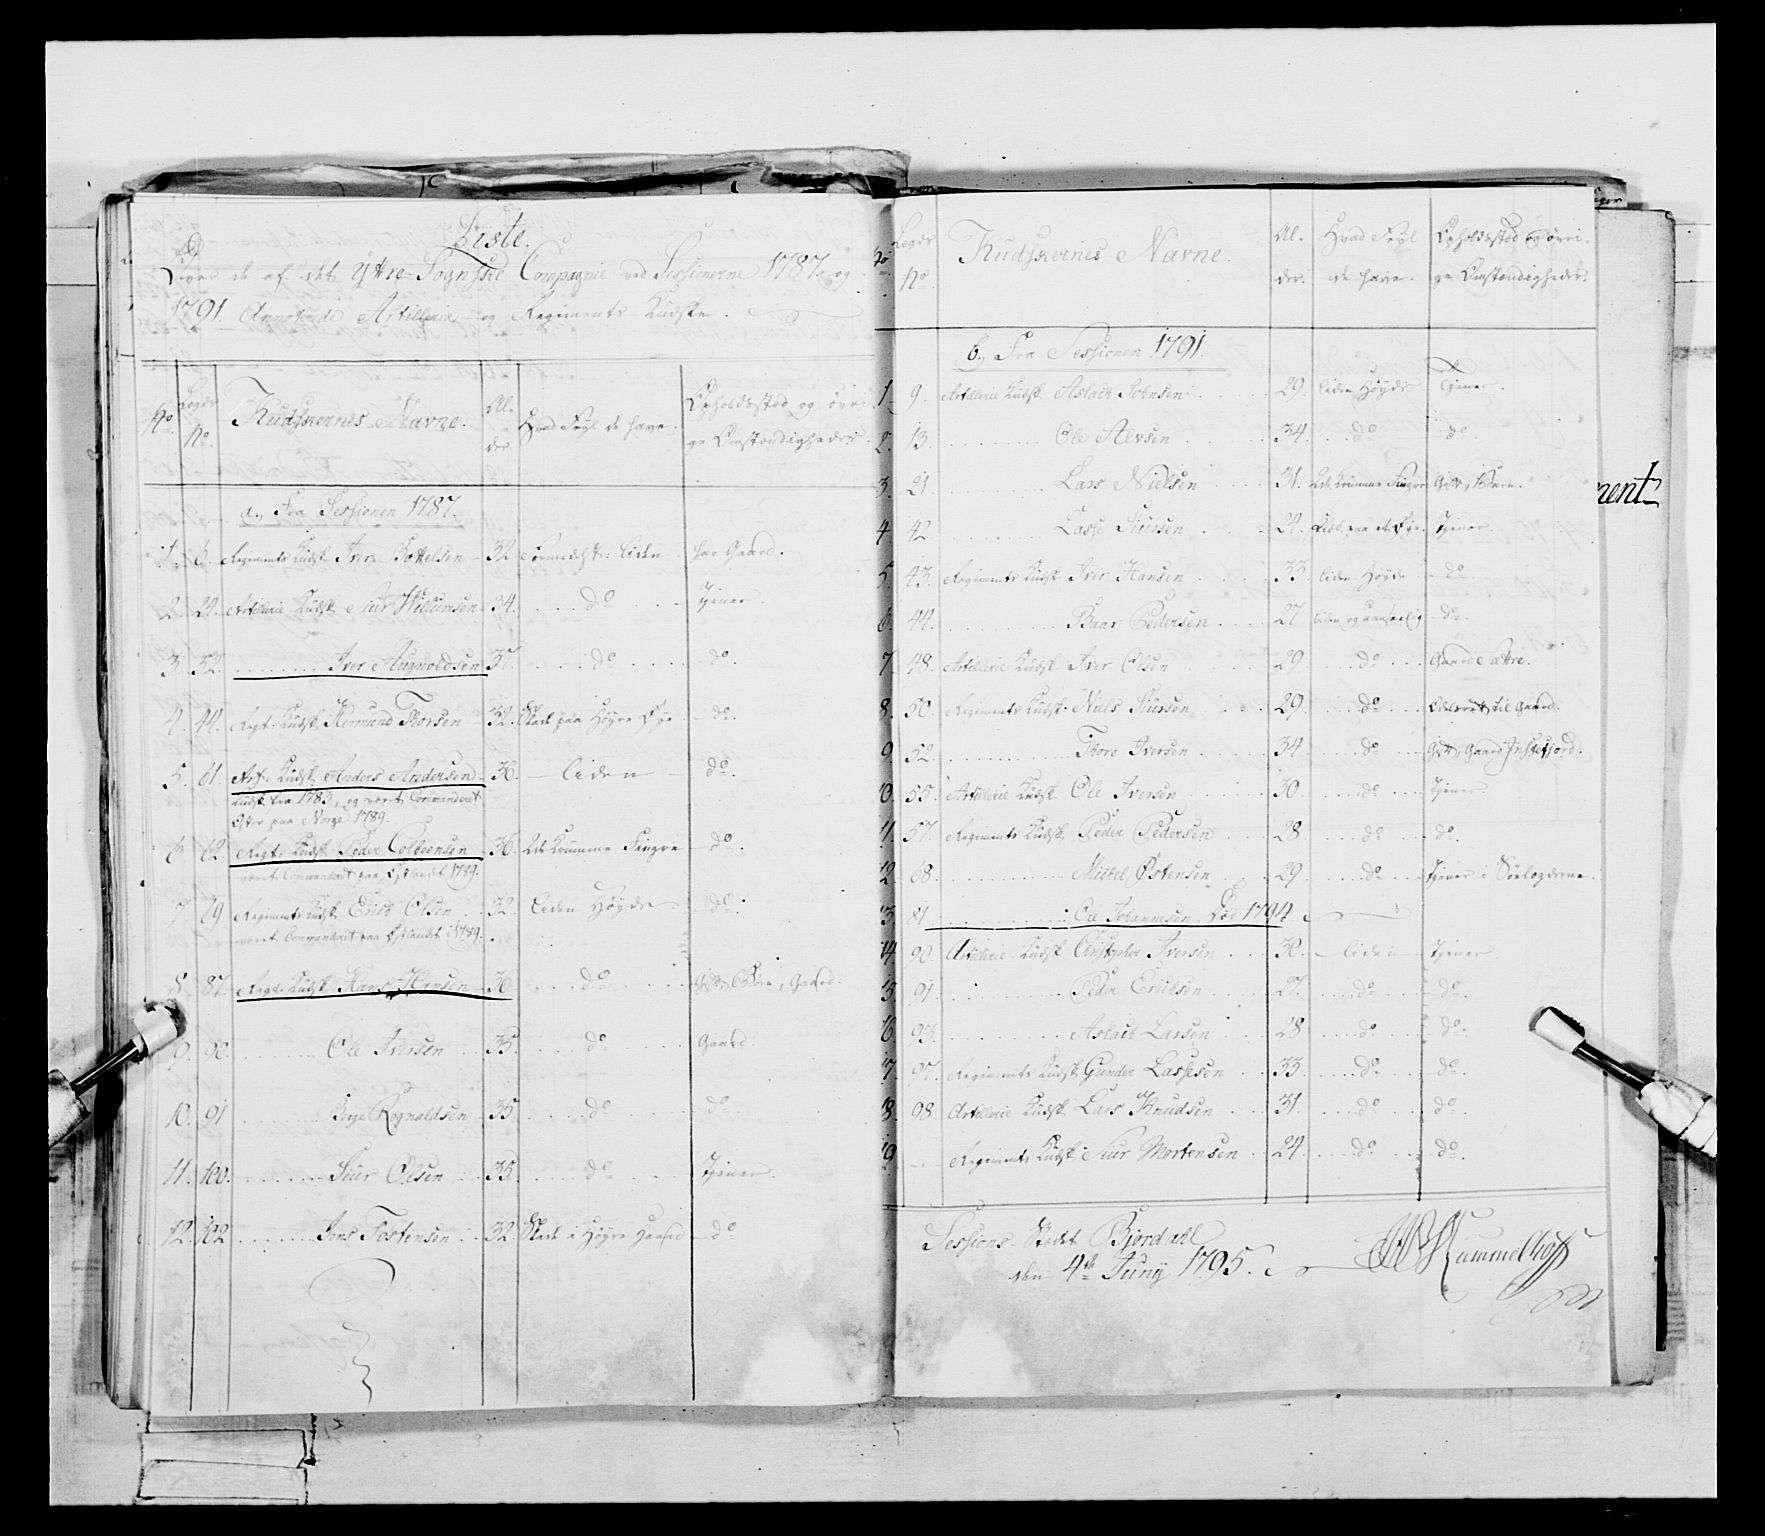 Liste
Over de af det Yttre-Sognske Compagnie ved Sessionerne 1787 og
1791 Annoterede Artillerie og Regiments-Kudske.
No. Legds No. Kudskernes Navne. Alder Hvad Feyl de have. Opholdsstæd og övrige Omstændigheder.
a., Fra Sessionen 1787.
1. 6. Regiments Kudsk Iver Bottelsen 32 liden har Gaard.
2. 24. Artillerie Kudsk Siur Willumsen 34. do Tjener.
3. 52. Iver Augnoldsen 37. do do.
4. 44. Regt: Kudsk Hermund Thorsen 32. Skade paa Höyre Öye do.
5. 61. Art: Kudsk Anders Andersen 36. liden do.
Kudsk fra 1783, og været Commanderet
Öster paa Norge 1789.
6 62. Regt: Kudsk Peder Colbensen 36. 2de Krumme Fingre do.
været Commanderet paa Östlandet 1789.
7 69 Regiments Kudsk Erick Olsen 32 liden Höyde do.
været Commanderet paa Östlandet i 1789.
8. 87. Regt: Kudsk Hans Hansen 36 do Gift, Börn, Gaard.
9. 90. Ole Iversen 35. do Gaard.
10. 91 Rognaldsen 35. do do
11. 100. Siur Olsen 35 do Tjener.
12. 102 Jens Tostensen 32 Skade i Höyre Haand do
No Legds No. Kudskernes Navne. Alder. Hvad Feyl de have. Opholdsstæd og övrige Omstændigheder.
b., Fra Sessionen 1791.
1 9. Artillerie Kudsk Aslack Johnsen 29. liden Höyde Tjener.
2. 13. Ole Alvsen 34. do do.
3. 21 Lars Nielsen 31. 2de Krumme Fingre Gift, Börn.
4 42 Lasse Siursen 24. Feil paa et Öye. Tjener.
5. 43. Regiments Kudsk Iver Hansen 33. liden Höyde do
6. 44. Baar Pedersen 27 liden og uanseelig do.
7 48. Artillerie Kudsk Iver Olsen 29 do Gaard Sættre.
8. 50. Regiments Kudsk Niels Siursen 29. do Odelsret til Gaard.
9. 52. Thore Iversen 34 do Gift, Gaard Instefjord.
10. 55. Artillerie Kudsk Ole Iversen 30. do Tjener
11. 57. Regiments Kudsk Peder Pedersen 28 do do.
12 68. Mickel Östensen 29 do Tjener i Söelægderne.
13. 81 Ole Johannesen, Död 1794
14 90. Artillerie Kudsk Christopher Iversen 30. liden Tjener
15 91. Peder Ericksen 27. do do.
16 93. Aslack Larsen 28 do do.
17. 97. Regiments Kudsk Gunder Lassesen 33 do do.
18. 98. Artillerie Kudsk Lars Knudsen 31. do do.
19 Regiments Kudsk Siur Mortensen 24. do do.
Sessions-Stedet Bjordahl
den 4de Juny 1795.
Kummelhoff
ment